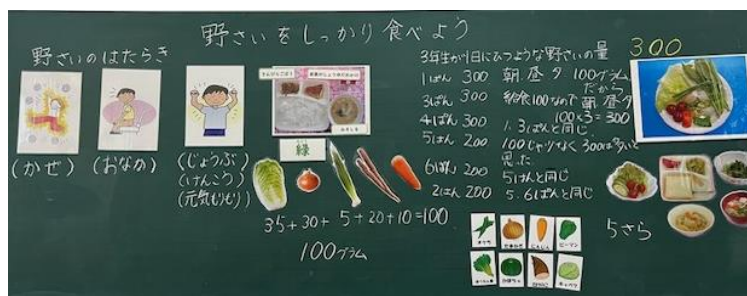 野さいをしっかり食べよう
野さいのはたらき
(かぜ)
(おなか)
(じょうぶ)
(けんこう)
(元気もりもり)
緑
35+30+5+20+10=100
100グラム
3年生が1日にひつような野さいの量
300
1ぱん 300 朝昼夕 100グラム
だから
3ぱん 300 給食100なので 朝昼夕
100×3=300
4ぱん 300 1.3ぱんと同じ
5はん 200 100じゃ少なく300は多いと
思った
6ぱん 200 5はんと同じ
2はん 200 5.6ぱんと同じ
5さら
たまねぎ
にんじん
ピーマン
かぼちゃ
キャベツ